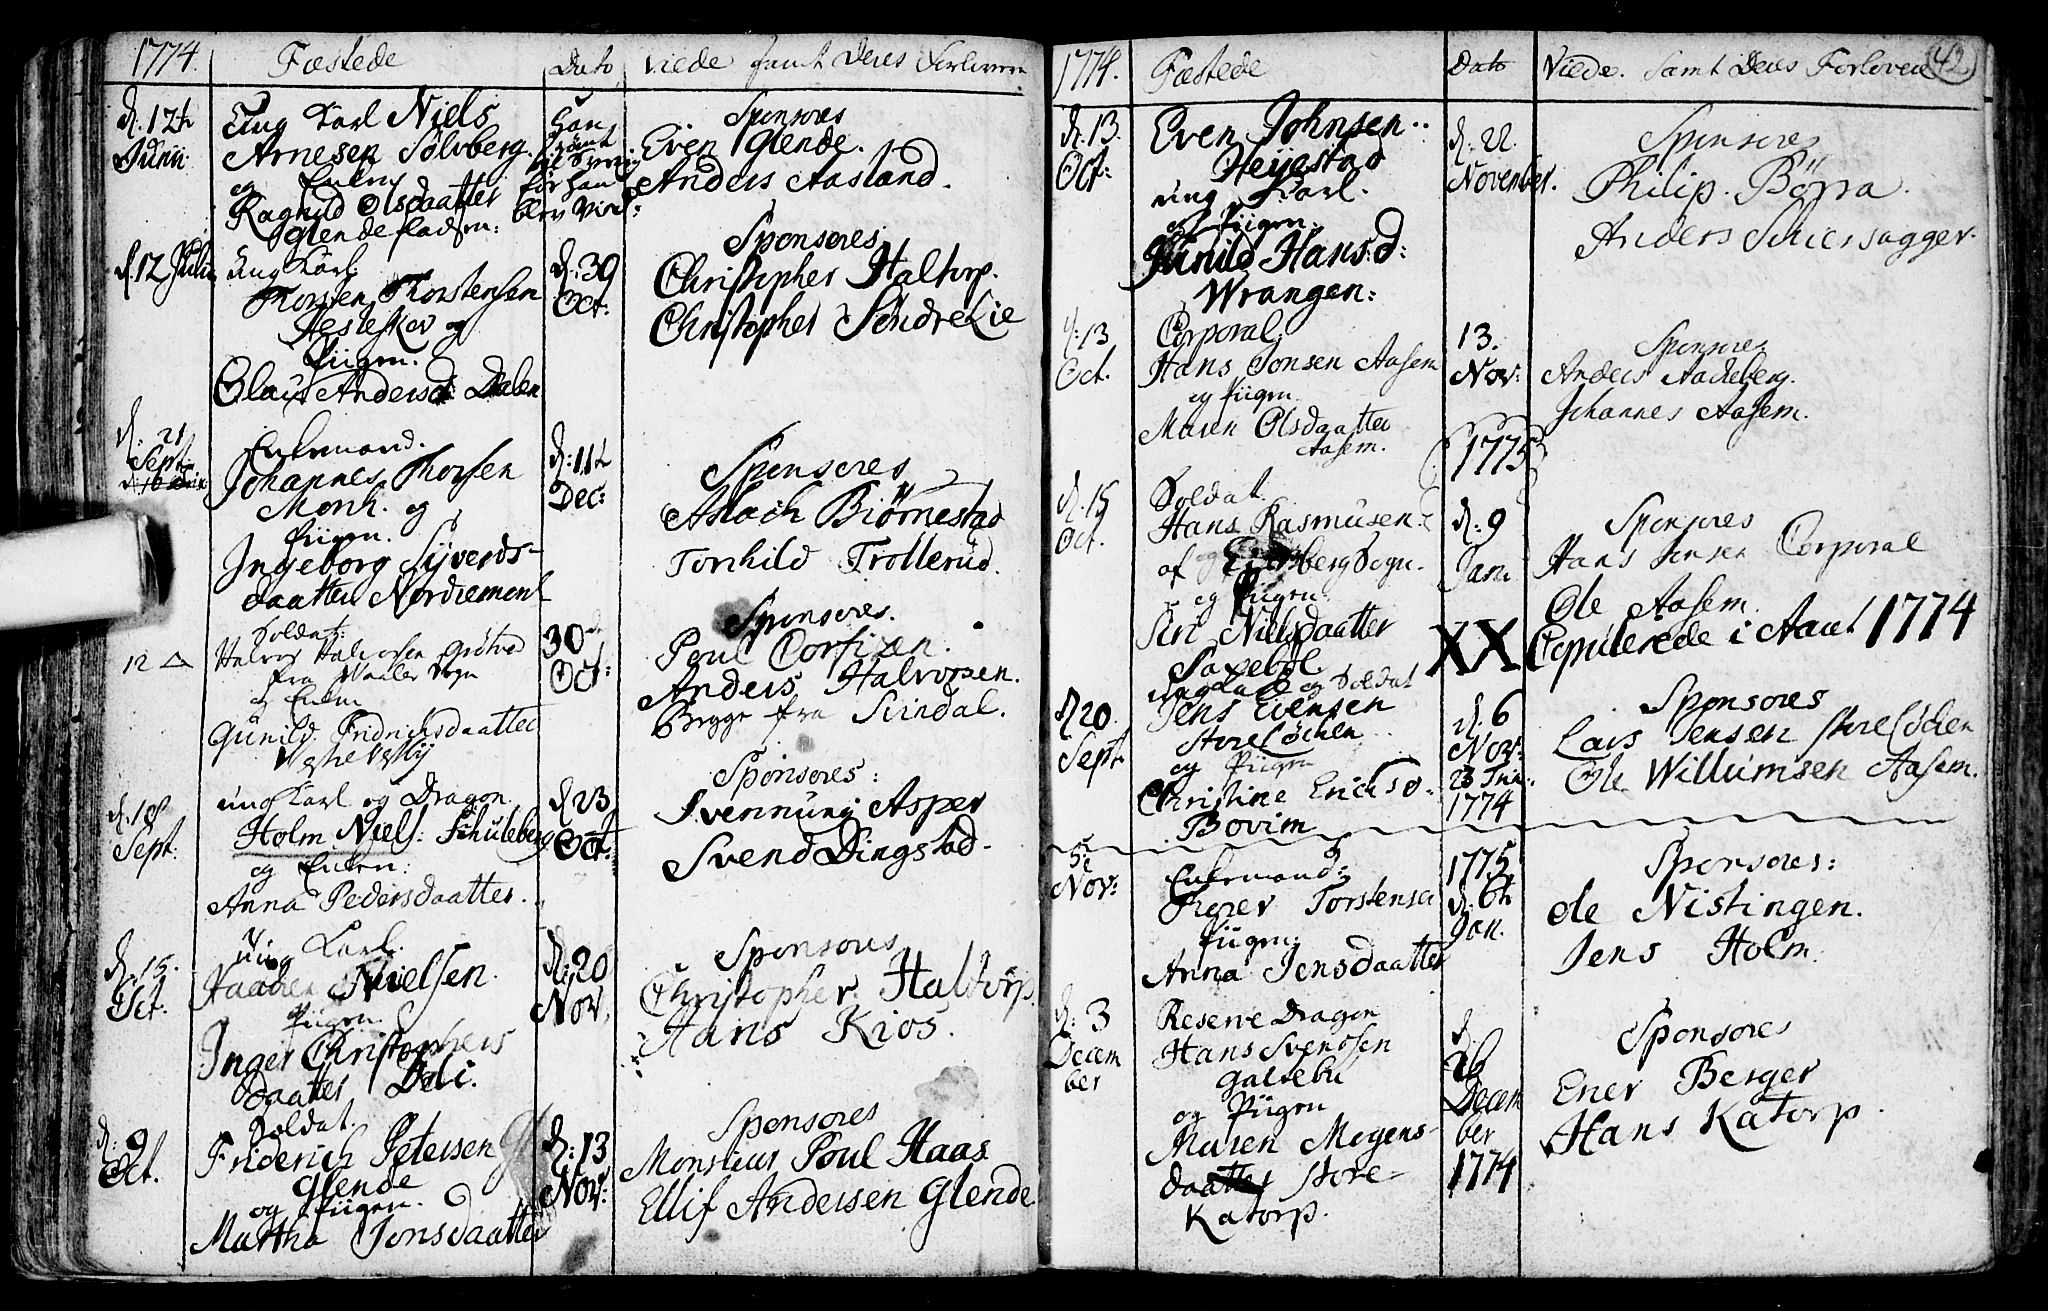 1774. Fæstede Dato Viede samt deres Forlovere
d. 12te Ung Karl Niels
Junii Arnesen Sølvberg.
og Enken
Ragnild Olsdaatter
Glende pladsen:
Han
Rømt
før han
blev Viet:
Sponsores
Even Glende.
Anders Aasland.
d. 12 Julii Ung Karl
Thorsten Thorstensen
og
Piigen.
Olaug Andersd: Dalen
d: 30
Oct:
Sponsores
Christopher Haltorp.
Christopher Søndre Lie
d: 21
Sept
Enkemand.
Johannes Thorsen
Monh. og
Piigen.
Ingeborg Syverds-
daatter Nordremork
d: 11te
Dec:
Sponsores
Aslach Biørnestad
Torhild Trollerud.
12
Soldat:
Halvor Halvorsen Grøtved
fra Waaler Sogn
og Enken
Gunild Fridrichsdaatter
Vestre Vestby
30
Oct:
Sponsores.
Poul Corfizen.
Anders Halvorsen.
Begge fra Svindal.
d. 18
Sept:
ung Karl og Dragon
Holm Niels: Schuleberg
og Enken:
Anna Pedersdaatter.
d. 23
Oct:
Sponsores:
Svennung Asper
Svend Dingstad.
d. 15.
Oct.
Ung Karl.
Haachen Nielsen.
Piigen.
Inger Christophers
daatter Deli.
d: 20
Nov.
Sponsores
Christopher Haltorp.
Hans Kios.
d: 9
Oct.
Soldat.
Friderich Petersen
Glende
og Piigen.
Martha Jonsdaatter
d: 13
Nov:
Sponsores
Monsieur Poul Haas
Ellif Andersen Glende
1774. Fæstede Dato Viede. Samt Deres Forlovere 42
d. 13.
Oct:
Even Johnsen
Heyestad
ung Karl.
og Piigen.
Gunild Hans:d:
Wrangen:
d: 22.
November.
Sponsores
Philip. Børra.
Anders Schiersagger.
d: 13
Oct.
Corporal.
Hans Jonsen Aasem
og Piigen
Maren Olsdaatter
Aasem.
13.
Nov:
Sponsores
Anders Aacheberg.
Johannes Aasem.
1775
d. 15
Oct.
Soldat.
Hans Rasmusen
af Eidsberg Sogn.
og Piigen:
Siri Nielsdaatter
Saxebøl.
d: 9
Janu
Sponsores
Hans Jensen Corporal
Ole Aasem.
XX Copulerede i Aaret 1774
d. 20.
Sept
ung Karl og Soldat
Jens Evensen
Store Løchen
og Piigen
Christine Erichsd.
Bovim
d. 6
Nov:
23 Trin:
1774
Sponsores
Lars Jensen Store Løchen
Ole Willumsen Aasem.
5te
Nov:
Enkemand:
Thorer Torstensen
Piigen:
Anna Jensdaatter
1775
d. 6te
Jan.
Sponsores:
Ole Nistingen.
Jens Holm.
d: 3
Decem
ber
Reserve Dragon
Hans Svendsen
Galtebu
og Piigen
Maren Mogens-
daatter Store-
Katorp.
d.
26
Decem
ber
1774
Sponsores
Ener Berger
Hans Katorp.